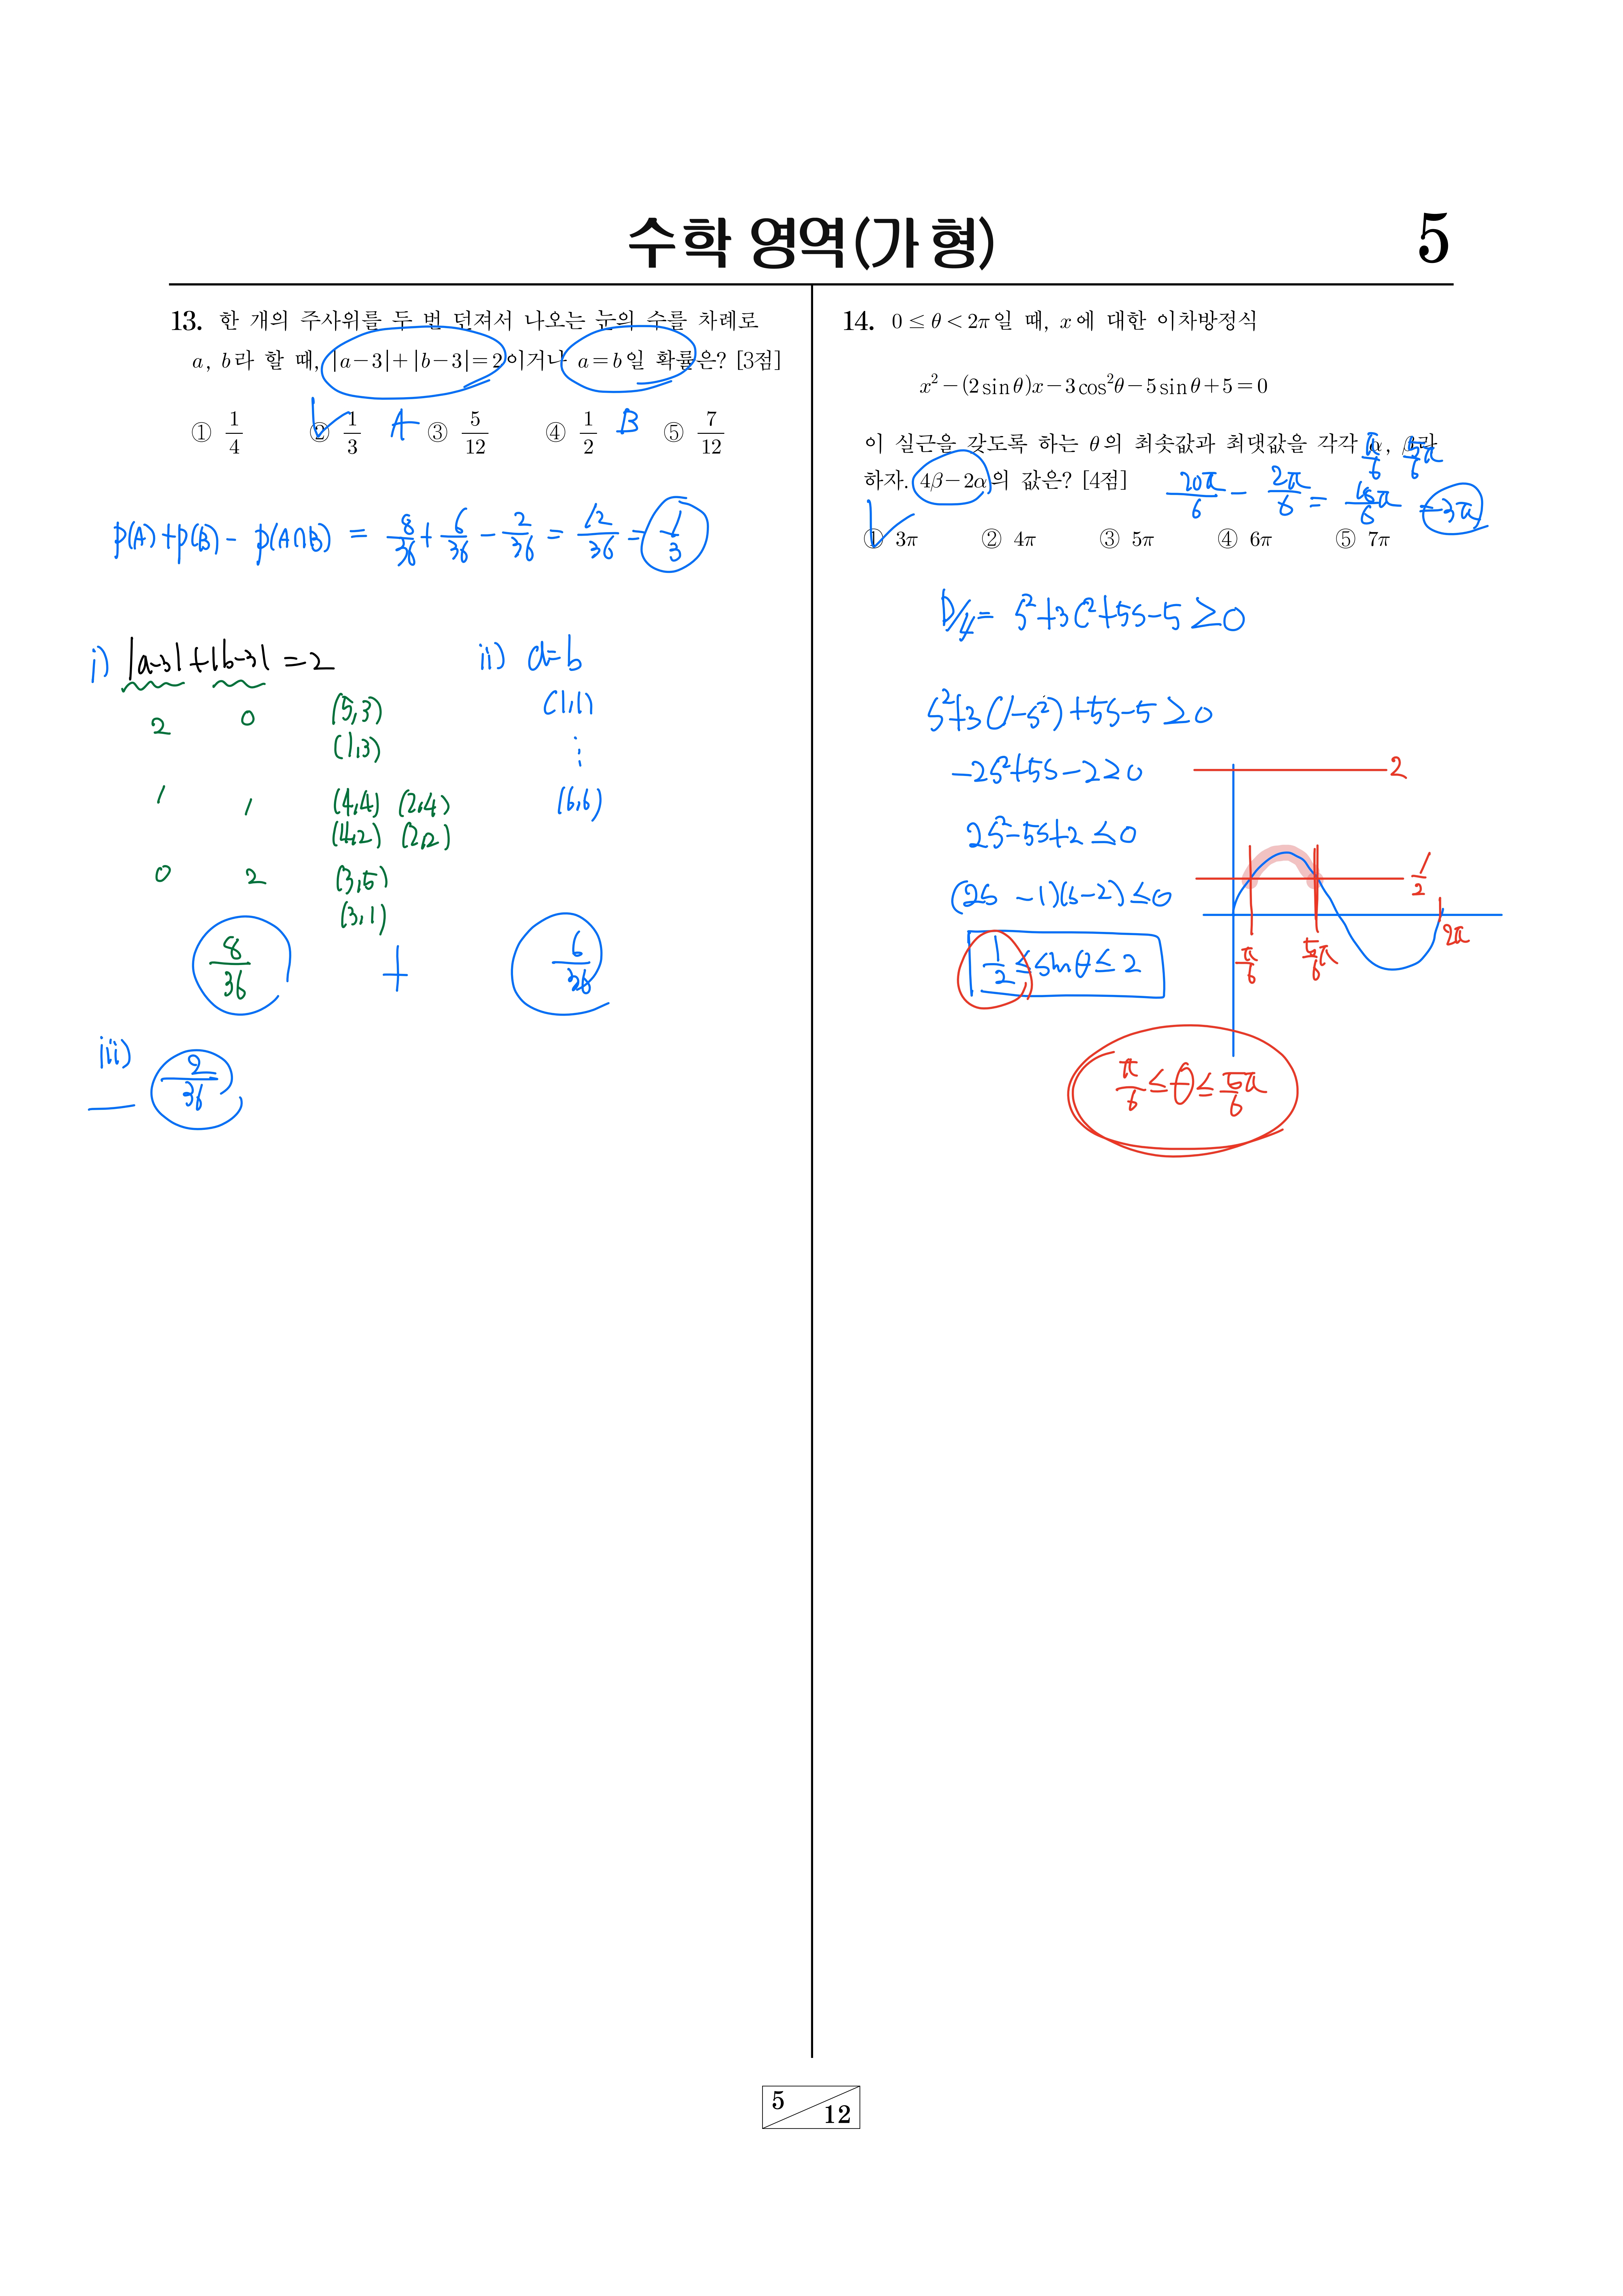 수학 영역(가 형)
5
13. 한 개의 주사위를 두 번 던져서 나오는 눈의 수를 차례로
a, b라 할 때, |a-3|+|b-3|=2이거나 a=b일 확률은? [3점]
① 1/4 ② 1/3 ③ 5/12 ④ 1/2 ⑤ 7/12
A B
P(A)+P(B)-P(A∩B) = 8/36 + 6/36 - 2/36 = 12/36 = 1/3
i) |a-3|+|b-3| =2
2 0 (5,3)
(1,3)
1 1 (4,4) (2,4)
(4,2) (2,2)
0 2 (3,5)
(3,1)
8/36 +
ii) a=b
(1,1)
⋮
(6,6)
6/36
iii)
— 2/36
14. 0≤θ<2π일 때, x에 대한 이차방정식
x²-(2sinθ)x-3cos²θ-5sinθ+5=0
이 실근을 갖도록 하는 θ의 최솟값과 최댓값을 각각 α, β라
π/6 5/6π
하자. 4β-2α의 값은? [4점]
20π/6 - 2π/6 = 18π/6 = 3π
① 3π ② 4π ③ 5π ④ 6π ⑤ 7π
D/4 = S²+3C²+5S-5≥0
S²+3(1-S²)+5S-5≥0
-2S²+5S-2≥0
2S²-5S+2≤0
(2S-1)(S-2)≤0
1/2≤sinθ≤2
2
1/2
π/6 5/6π 2π
π/6≤θ≤5/6π
5
12